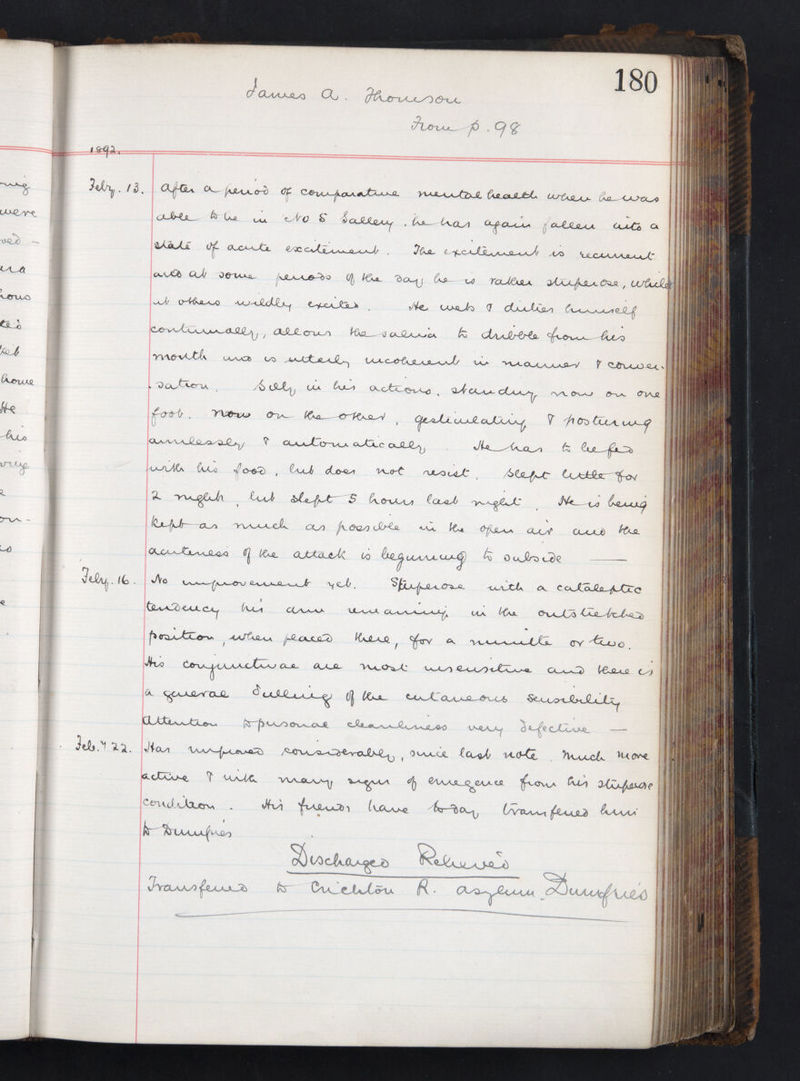 180
James A. Thomson
From p. 98
1892.
Feby. 13. After a period of comparative mental health when he was
able to be in No 5 Gallery, he has again fallen into a
state of acute excitement. The excitement is recurrent
and at some periods of the day he is rather stuperose, whilst
at others wildly excited. He wets & dirties himself
continually, allows the saliva to dribble from his
mouth and is utterly incoherent in manner & conver-
sation. Silly in his actions, standing now on one
foot, now on the other, gesticulating & posturing
aimlessly & automatically. He has to be fed
with his food, but does not resist. Slept little for
2 nights, but slept 5 hours last night. He is being
kept as much as possible in the open air and the
acuteness of the attack is beginning to subside —
Feby. 16. No improvement yet. Stuperose with a cataleptic
tendency his arm remaining in the outstretched
position, when placed there, for a minute or two.
His conjunctivae are most insensitive and there is
a general dulling of the cutaneous sensibility
Attention to personal cleanliness very defective —
Feb.y 22. Has improved considerably, since last note. Much more
active & with many signs of emergence from his stuperose
condition. His friends have to day transferred him
to Dumfries
Discharged Relieved
Transferred to Crichton R. Asylum, Dumfries